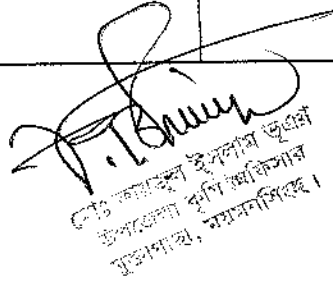 মোঃ ইসলাম ভূঞা
উপজেলা কৃষি অফিসার
মুক্তাগাছা, ময়মনসিংহ।